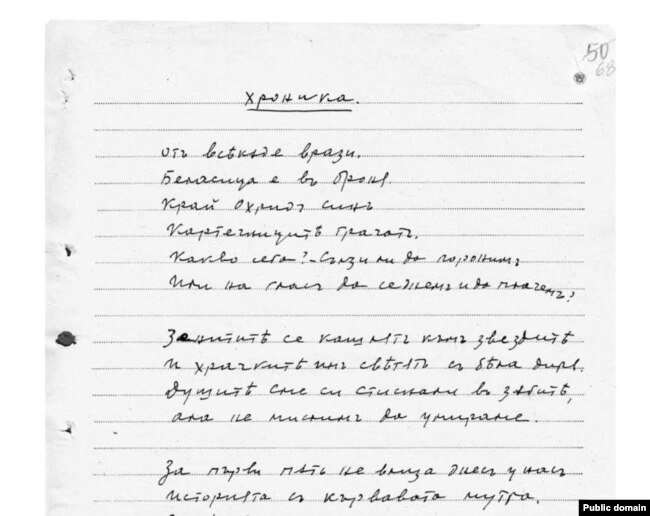 50
68
Хроника.
Отъ всѣкѫде врази.
Беласица е въ броня.
Край Охридъ синъ
Картечницитѣ грачатъ.
Какво сега? - Сълзи ли да роронимъ
Или на гласъ да седнемъ и да плачемъ?
Зенититѣ се кашлятъ къмъ звездитѣ
И храчкитѣ имъ свѣтятъ съ бѣла диря.
Душитѣ сме си стискали въ зѫбитѣ,
ала не мислимъ да умираме.
За първи пѫть не влиза днесъ у насъ
Историята съ кървавата мутра.
Public domain